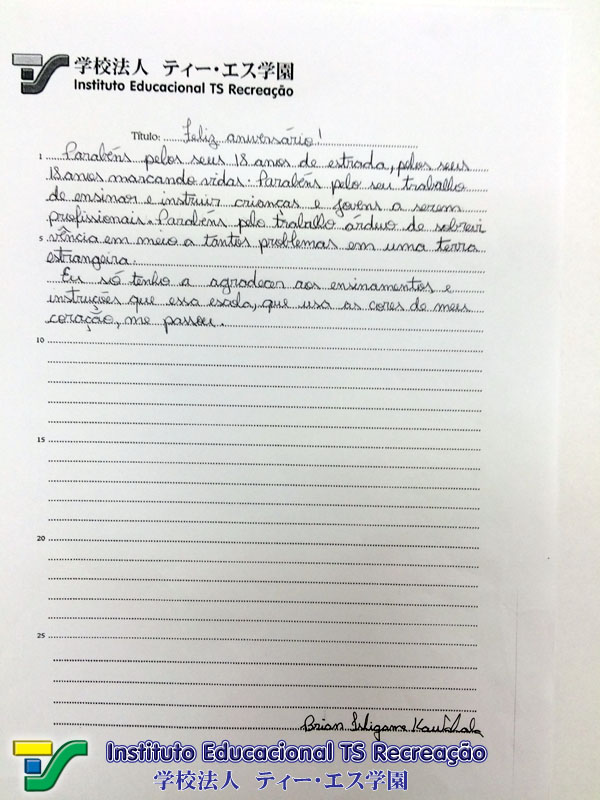 TS
学校法人 ティー・エス学園
Instituto Educacional TS Recreação
Título: Feliz aniversário!
1 Parabéns pelos seus 18 anos de estrada, pelos seus
18 anos marcando vidas. Parabéns pelo seu trabalho
de ensinar e instruir crianças e jovens a serem
profissionais. Parabéns pelo trabalho árduo de sobrevi
5 vência em meio a tantos problemas em uma terra
estrangeira.
Eu só tenho a agradecer aos ensinamentos e
instruções que essa escola, que usa as cores de meu
coração, me passou.
10
15
20
25
Brian
TS
Instituto Educacional TS Recreação
学校法人 ティー・エス学園